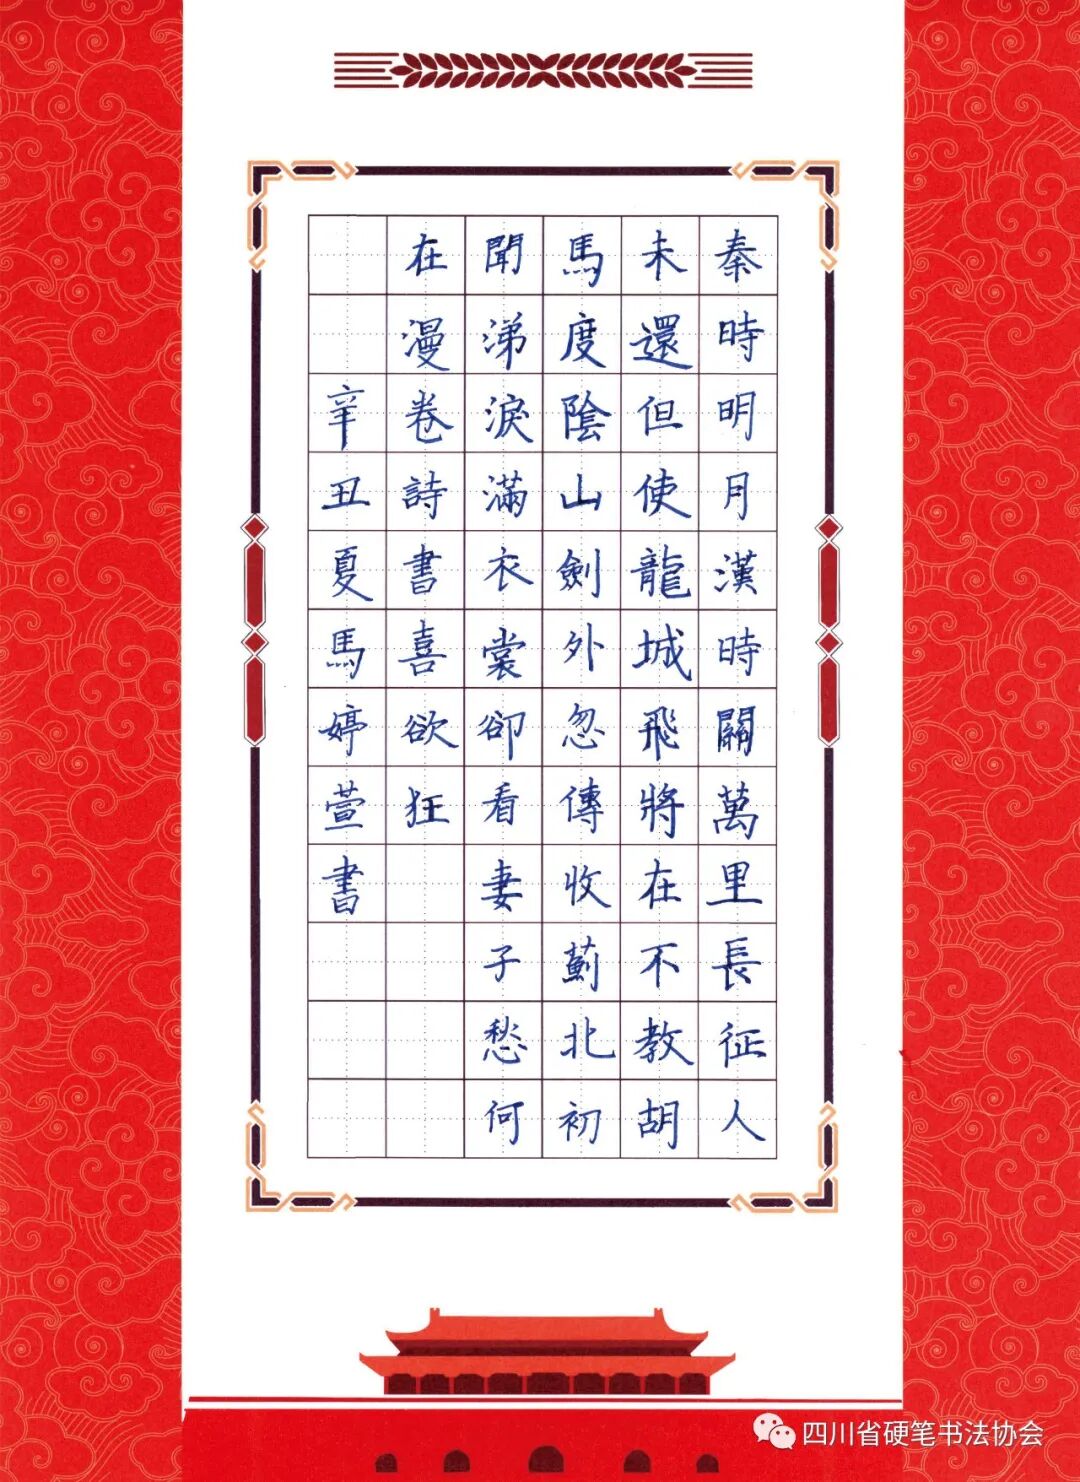 秦時明月漢時關萬里長征人
未還但使龍城飛將在不教胡
馬度陰山劍外忽傳收薊北初
聞涕淚滿衣裳卻看妻子愁何
在漫卷詩書喜欲狂
辛丑夏馬婷萱書
四川省硬笔书法协会